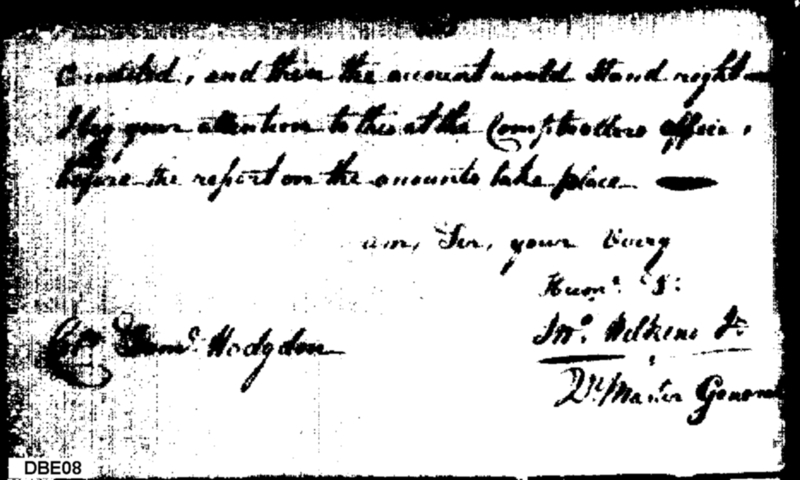 Credited, and then the account would Stand right
I beg your attention to this at the Comptrollers office,
before the report on the amounts take place
am, Sir, your Very
Hum. S:
Jno. Wilkins Jr
Saml. Hodgdon
Qr. Master General
DBE08